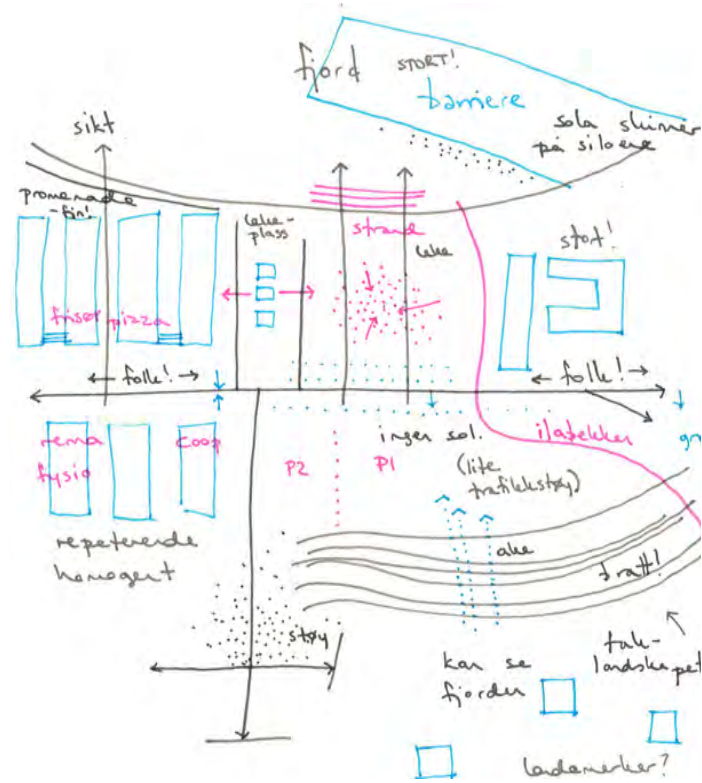 fjord
STORT!
barriere
sola skinner
på siloene
sikt
promenade
- fin!
leke-
plass
strand
leke
stort!
frisør pizza
folk!
folk!
rema
fysio
coop
P2
P1
ingen sol.
(lite
trafikkstøy)
ilabekken
gr
repeterende
homogent
ake
bratt!
støy
kan se
fjorden
tak-
landskapet
landemerker?